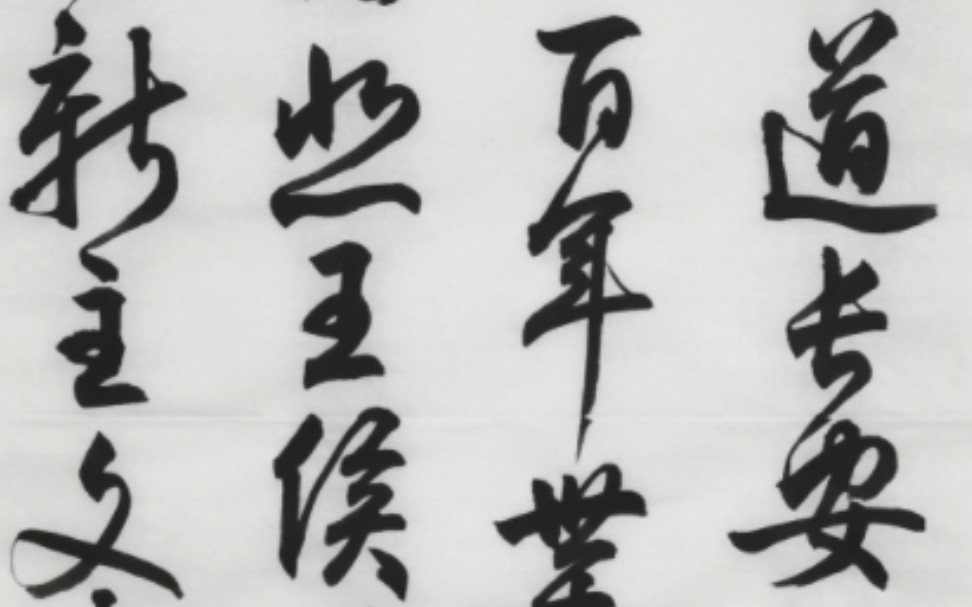 道長安
百年世
悲王侯
新主文